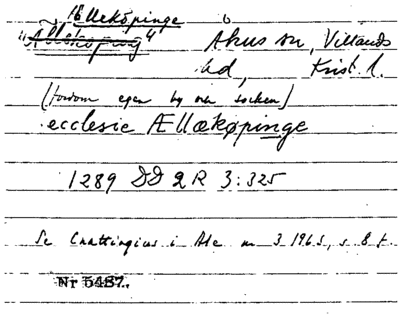 Ælleköpinge
"Ællsköping" Åhus sn, Villands
hd, Krist. l.
(fordom egen by och socken)
ecclesie Ællækøpinge
1289 DD 2 R 3:325
Se Cnattingius i Ale nr 3 1965, s 8 f.
Nr 5487.